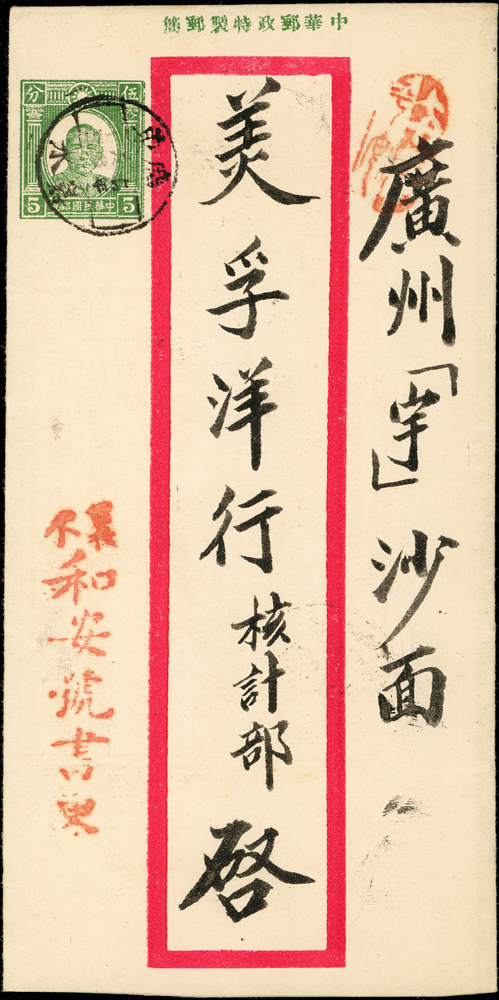 中華郵政特製郵簡
廣州「字」沙面
美孚洋行核計部啓
和安號書柬
伍分
5 中華民國郵政 5